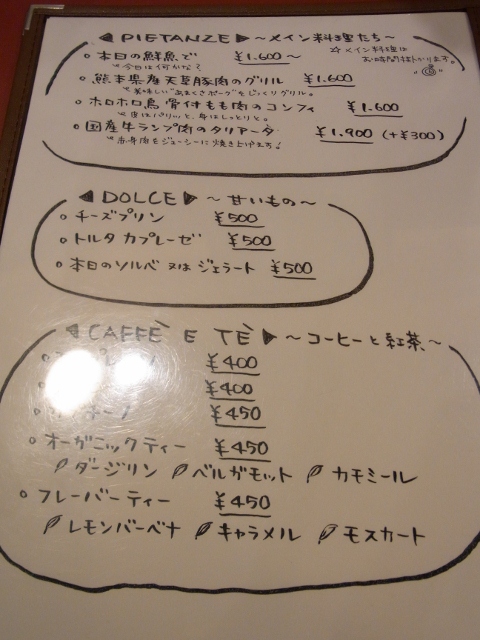 ◀ PIETANZE ▶ ～メイン料理たち～
☆メイン料理は
お時間掛かります。
○本日の鮮魚で ¥1.600～
今日は何かな?
○熊本県産天草豚肉のグリル ¥1.600
美味しい"あまくさポーク"をじっくりグリル。
○ホロホロ鳥 骨付もも肉のコンフィ ¥1.600
皮はパリッと、身はしっとりと。
○国産牛ランプ肉のタリアータ ¥1.900 (+¥300)
赤身肉をジューシーに焼き上げます!
◀ DOLCE ▶ ～甘いもの～
○チーズプリン ¥500
○トルタ カプレーゼ ¥500
○本日のソルベ 又は ジェラート ¥500
◀ CAFFÈ E TÈ ▶ ～コーヒーと紅茶～
¥400
¥400
¥450
○オーガニックティー ¥450
ダージリン ベルガモット カモミール
○フレーバーティー ¥450
レモンバーベナ キャラメル モスカート